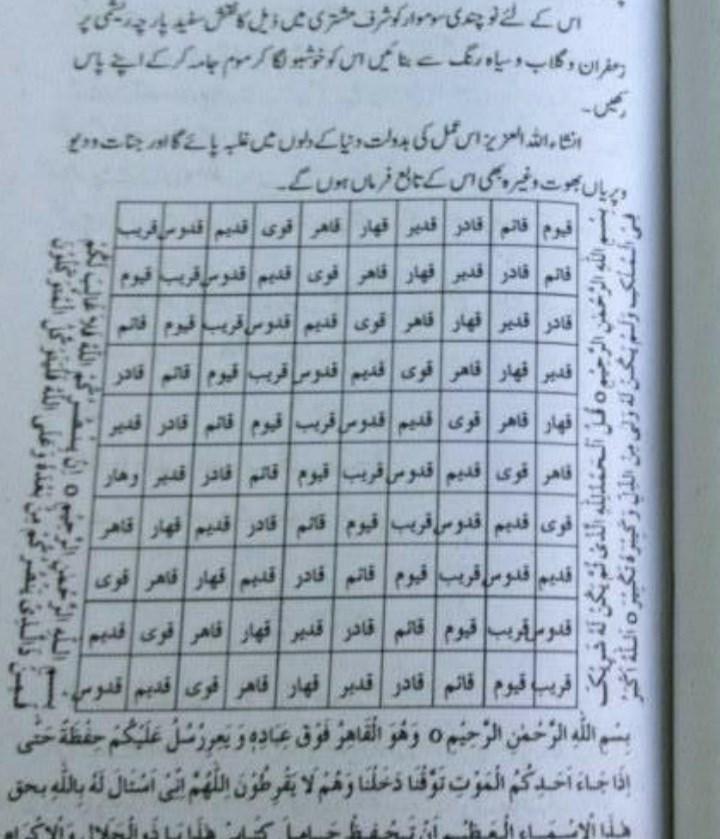 اس کے لئے نو چندی سوموار کو شرف مشتری میں ذیل کا نقش سفید پارچہ ریشمی پر
زعفران و گلاب و سیاہ رنگ سے بنائیں اس کو خوشبو لگا کر موم جامہ کر کے اپنے پاس
رکھیں۔
انشاء اللہ العزیز اس عمل کی بدولت دنیا کے دلوں میں غلبہ پائے گا اور جنات و دیو
وپریاں بھوت وغیرہ بھی اس کے تابع فرماں ہوں گے۔
قیوم قائم قادر قدیر قهار قاهر قوی قدیم قدوس قریب
قائم قادر قدیر قهار قاهر قوی قدیم قدوس قریب قیوم
قادر قدیر قهار قاهر قوی قدیم قدوس قریب قیوم قائم
قدیر قهار قاهر قوی قدیم قدوس قریب قیوم قائم قادر
قهار قاهر قوی قدیم قدوس قریب قیوم قائم قادر قدیر
قاهر قوی قدیم قدوس قریب قیوم قائم قادر قدیر وهار
قوی قدیم قدوس قریب قیوم قائم قادر قدیم قهار قاهر
قدیم قدوس قریب قیوم قائم قادر قدیم قهار قاهر قوی
قدوس قریب قیوم قائم قادر قدیر قهار قاهر قوی قدیم
قریب قیوم قائم قادر قدیر قهار قاهر قوی قدیم قدوس
بِسْمِ اللّٰهِ الرَّحْمٰنِ الرَّحِيْمِ o قُلِ الْحَمْدُ لِلّٰهِ الَّذِىْ لَمْ يَكُنْ لَهٗ شَرِيْكٌ
فِى الْمُلْكِ وَلَمْ يَكُنْ لَهٗ وَلِىٌّ مِنَ الذُّلِّ وَكَبِّرْهُ تَكْبِيْرًا o اَللّٰهُ اَكْبَرُ
بِسْمِ اللّٰهِ الرَّحْمٰنِ الرَّحِيْمِ o اِنْ يَنْصُرْكُمُ اللّٰهُ فَلَا غَالِبَ لَكُمْ
يَنْصُرُكُمْ مِنْ بَعْدِهٖ وَعَلَى اللّٰهِ فَلْيَتَوَكَّلِ الْمُتَوَكِّلُوْنَ
بِسْمِ اللّٰهِ الرَّحْمٰنِ الرَّحِيْمِ o وَهُوَ الْقَاهِرُ فَوْقَ عِبَادِهٖ وَيَعِرْسُلُ عَلَيْكُمْ حِفْظَةً حَتّٰى
اِذَا جَاءَ اَحَدِكُمُ الْمَوْتِ تَوْفَّنَا دَخَلْنَا وَهُمْ لَا يَفْرِطُوْنَ اَللّٰهُمَّ اِنِّىْ اَسْتَالَ لَهٗ بِاللّٰهِ بحق
هٰذَا الْاِسْمَاءِ الْعَظِيْمِ اَنْ